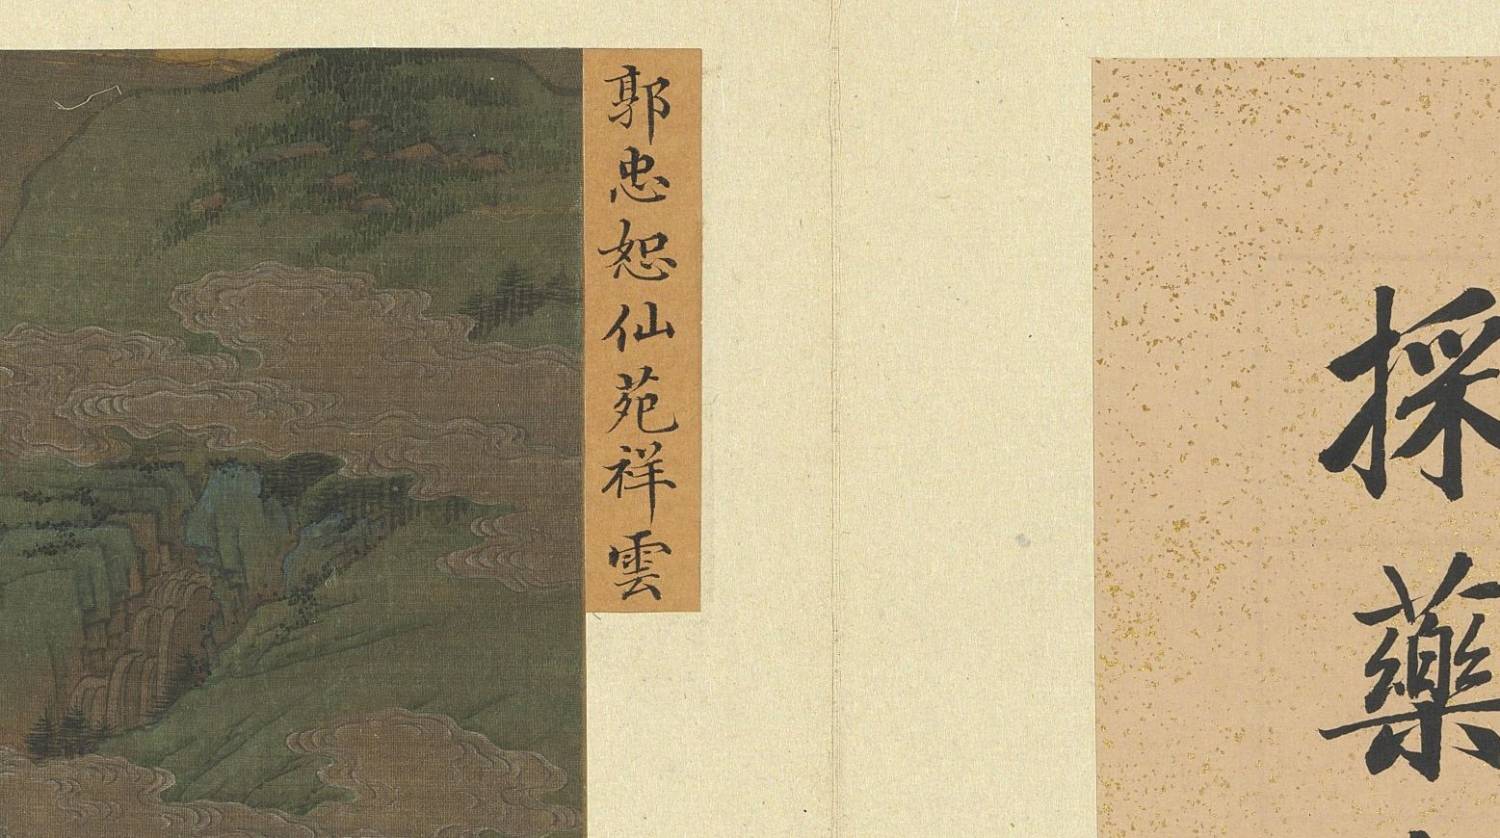 採藥
郭忠恕仙苑祥雲